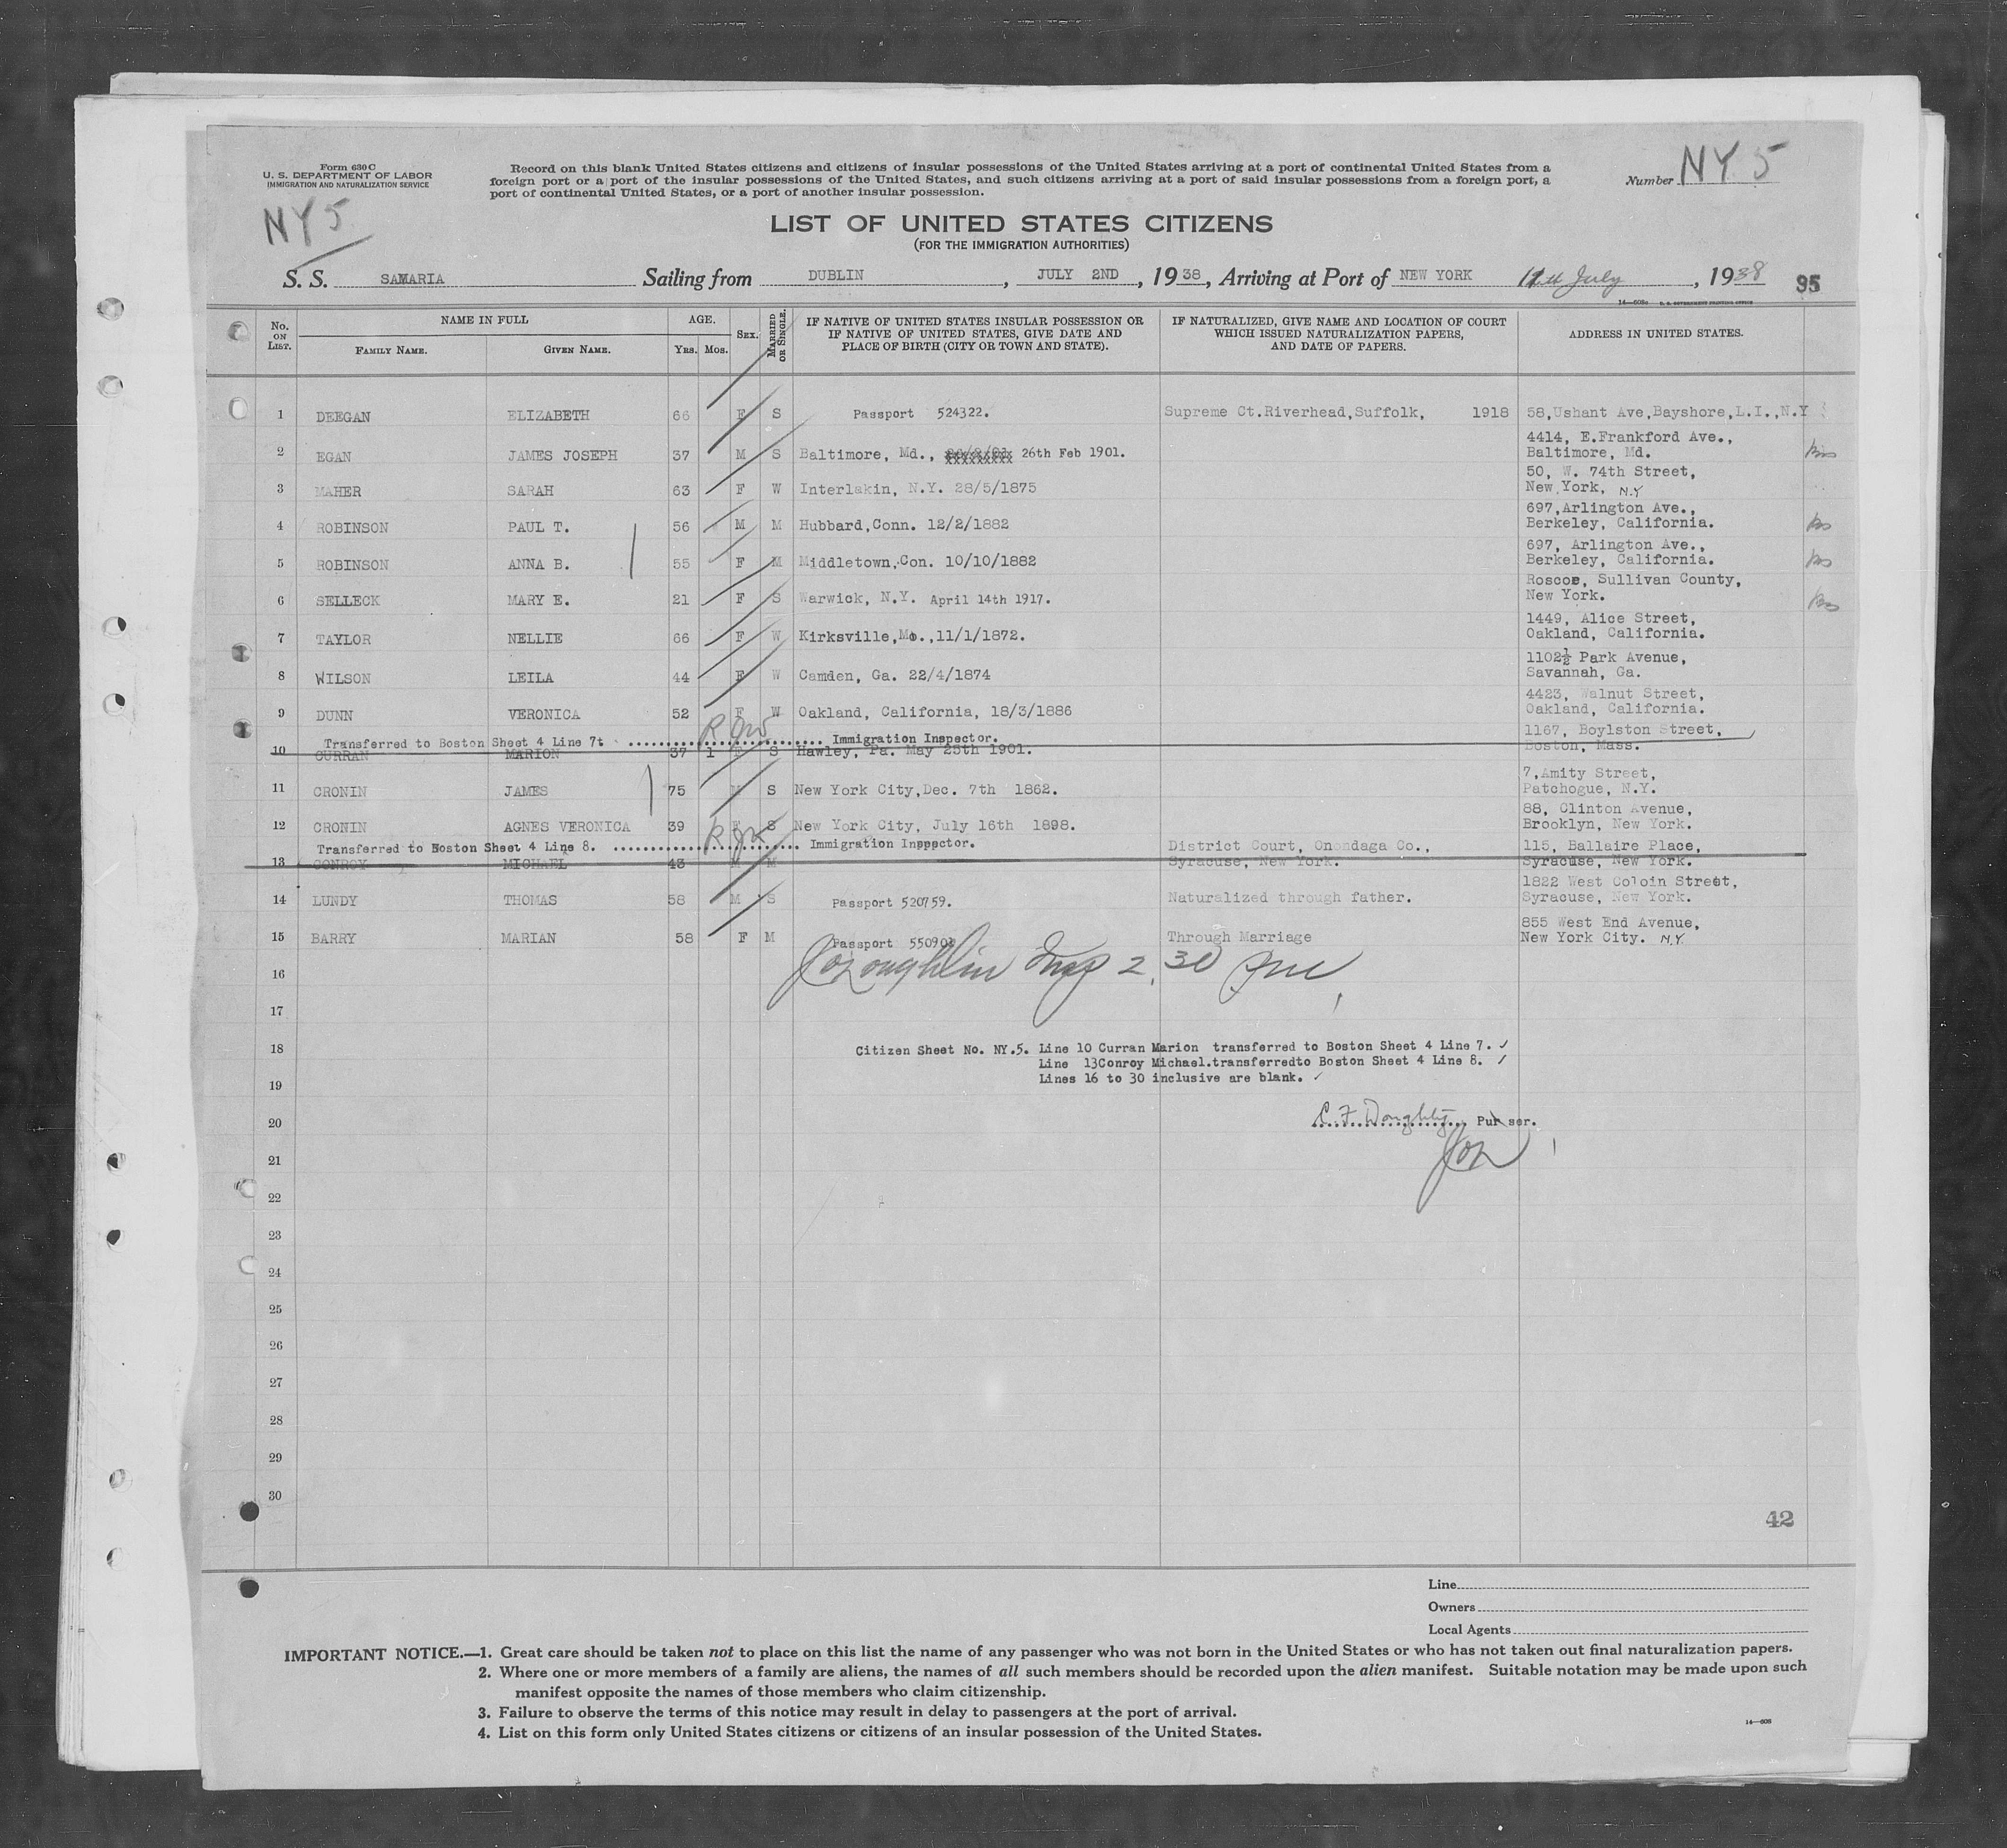 Form 630 C
U. S. DEPARTMENT OF LABOR
IMMIGRATION AND NATURALIZATION SERVICE
NY 5
Record on this blank United States citizens and citizens of insular possessions of the United States arriving at a port of continental United States from a
foreign port or a port of the insular possessions of the United States, and such citizens arriving at a port of said insular possessions from a foreign port, a
port of continental United States, or a port of another insular possession.
Number NY 5
LIST OF UNITED STATES CITIZENS
(FOR THE IMMIGRATION AUTHORITIES)
S. S. SAMARIA Sailing from DUBLIN, JULY 2ND, 1938, Arriving at Port of NEW YORK 11th July, 1938 95
No. ON LIST. NAME IN FULL FAMILY NAME. GIVEN NAME. AGE. YRS. MOS. SEX. MARRIED OR SINGLE. IF NATIVE OF UNITED STATES INSULAR POSSESSION OR IF NATIVE OF UNITED STATES, GIVE DATE AND PLACE OF BIRTH (CITY OR TOWN AND STATE). IF NATURALIZED, GIVE NAME AND LOCATION OF COURT WHICH ISSUED NATURALIZATION PAPERS, AND DATE OF PAPERS. ADDRESS IN UNITED STATES.
1 DEEGAN ELIZABETH 66 F S Passport 524322. Supreme Ct.Riverhead,Suffolk, 1918 58,Ushant Ave,Bayshore,L.I.,N.Y
2 EGAN JAMES JOSEPH 37 M S Baltimore, Md., 26th Feb 1901. 4414, E.Frankford Ave., Baltimore, Md.
3 MAHER SARAH 63 F W Interlakin, N.Y. 28/5/1875 50, W. 74th Street, New York, N.Y
4 ROBINSON PAUL T. 56 M M Hubbard,Conn. 12/2/1882 697,Arlington Ave., Berkeley, California.
5 ROBINSON ANNA B. 55 F M Middletown,Con. 10/10/1882 697, Arlington Ave., Berkeley, California.
6 SELLECK MARY E. 21 F S Warwick, N.Y. April 14th 1917. Roscoe, Sullivan County, New York.
7 TAYLOR NELLIE 66 F W Kirksville,Mo.,11/1/1872. 1449, Alice Street, Oakland, California.
8 WILSON LEILA 44 F W Camden, Ga. 22/4/1874 1102½ Park Avenue, Savannah, Ga.
9 DUNN VERONICA 52 F W Oakland, California, 18/3/1886 4423, Walnut Street, Oakland, California.
Transferred to Boston Sheet 4 Line 7t Immigration Inspector.
10 CURRAN MARION 37 1 F S Hawley, Pa. May 25th 1901. 1167, Boylston Street, Boston, Mass.
11 CRONIN JAMES 75 M S New York City,Dec. 7th 1862. 7,Amity Street, Patchogue, N.Y.
12 CRONIN AGNES VERONICA 39 F S New York City, July 16th 1898. 88, Clinton Avenue, Brooklyn, New York.
Transferred to Boston Sheet 4 Line 8. Immigration Inspector.
13 CONROY MICHAEL 43 M M District Court, Onondaga Co., Syracuse, New York. 115, Ballaire Place, Syracuse, New York.
14 LUNDY THOMAS 58 M S Passport 520759. Naturalized through father. 1822 West Coloin Street, Syracuse, New York.
15 BARRY MARIAN 58 F M Passport Through Marriage 855 West End Avenue, New York City. N.Y.
16 Insp 2,30 pm
17
18 Citizen Sheet No. NY.5. Line 10 Curran Marion transferred to Boston Sheet 4 Line 7.
Line 13Conroy Michael.transferredto Boston Sheet 4 Line 8.
19 Lines 16 to 30 inclusive are blank.
20 C. F. Doughty Purser.
21
22
23
24
25
26
27
28
29
30
42
Line
Owners
Local Agents
IMPORTANT NOTICE.—1. Great care should be taken not to place on this list the name of any passenger who was not born in the United States or who has not taken out final naturalization papers.
2. Where one or more members of a family are aliens, the names of all such members should be recorded upon the alien manifest. Suitable notation may be made upon such
manifest opposite the names of those members who claim citizenship.
3. Failure to observe the terms of this notice may result in delay to passengers at the port of arrival.
4. List on this form only United States citizens or citizens of an insular possession of the United States.
14—608